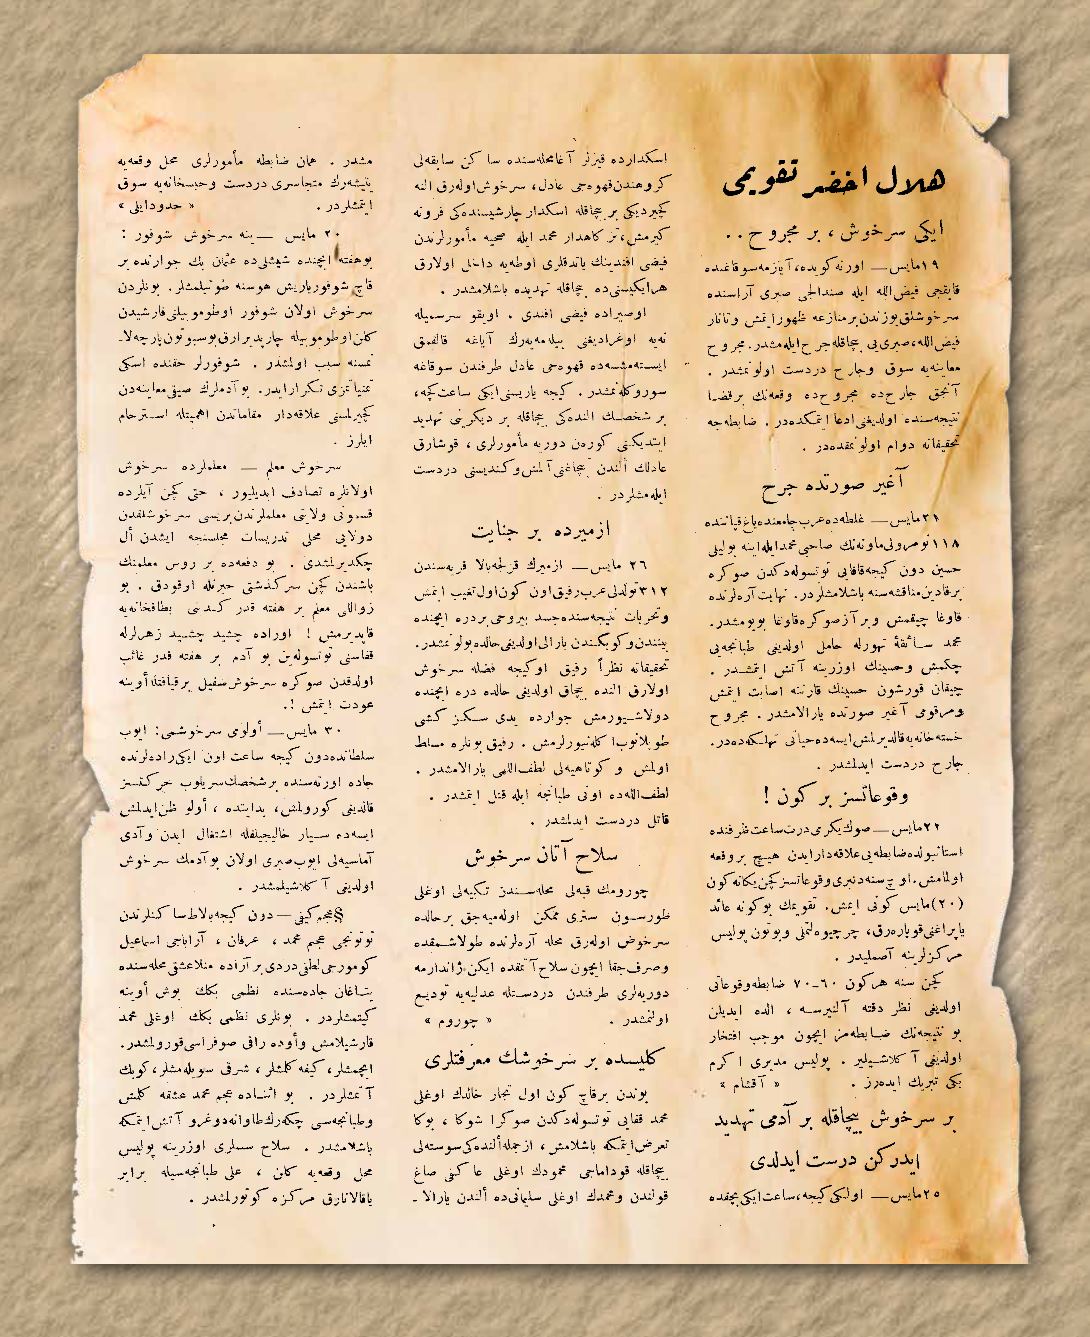 هلال اخضر تقویمی
ایکی سرخوش ، بر مجروح . .
١٩ مایس — اورته کویده، آیازمه سوقاغنده
قایقجی فیض الله ایله صندالجی صبری آراسنده
سرخوشلق یوزندن بر منازعه ظهور ایتمش وتاتار
فیض الله، صبری یی بیچاقله جرح ایله مشدر. مجروح
معاینه یه سوق وجارح دردست اولونمشدر .
آنجق جارح ده مجروح ده وقعه نك برقضا
نتیجه سنده اولدیغنی ادعا ایتمکده در . ضابطه جه
تحقیقاته دوام اولونمقده در .
آغیر صورتده جرح
٢١ مایس — غلطه ده عرب جامعنده یاغ قپاننده
١١٨ نومرولی ماونه نك صاحبی محمد ایله اینه بولیلی
حسین دون کیجه قافایی توتسوله دکدن صوکره
برقادین مناقشه سنه باشلامشلردر. نهایت آره لرنده
قاوغا چیقمش وبر آز صوکره قاوغا بویومشدر.
محمد سائقۀ تهورله حامل اولدیغی طبانجه یی
چکمش وحسینك اوزرینه آتش ایتمشدر .
چیقان قورشون حسینك قارننه اصابت ایتمش
ومرقومی آغیر صورتده یارالامشدر . مجروح
خسته خانه یه قالدیرلمش ایسه ده حیاتی تهلکه ده در.
جارح دردست ایدلمشدر .
وقوعاتسز بر کون !
٢٢ مایس — صوك یکرمی درت ساعت ظرفنده
استانبولده ضابطه یی علاقه دار ایدن هیچ بر وقعه
اولمامش. اوچ سنه دنبری وقوعاتسز کچن یکانه کون
(٢٠) مایس کونی ایمش. تقویمك بوکونه عائد
یاپراغنی قوپاره رق، چرچیوه لتملی وبوتون پولیس
مرکزلرینه آصملیدر .
کچن سنه هرکون ٦٠-٧٠ ضابطه وقوعاتی
اولدیغی نظر دقته آلنیرسه ، الده ایدیلن
بو نتیجه نك ضابطه مز ایچون موجب افتخار
اولدیغی آكلاشیلیر . پولیس مدیری اکرم
بکی تبریك ایده رز . « آقشام »
بر سرخوش بیچاقله بر آدمی تهدید
ایدرکن درست ایدلدی
٢٥ مایس — اولکی کیجه، ساعت ایکی بچقده
اسکدارده قیزلر آغا محله سنده ساکن سابقه لی
کروهندن قهوه جی عادل، سرخوش اوله رق النه
کچیردیکی بر بیچاقله اسکدار چارشیسنده کی فرونه
کیرمش، تزکاهدار محمد ایله صحیه مأمورلرندن
فیضی افندینك یاتدقلری اوطه یه داخل اولارق
هرایکیسنی ده بیچاقله تهدیده باشلامشدر .
اوصیراده فیضی افندی . اویقو سرسمیله
نه یه اوغرادیغنی بیله مه یه رك آیاغه قالقمق
ایسته مشسه ده قهوه جی عادل طرفندن سوقاغه
سوروکلنمشدر . کیجه یاریسی ایکی ساعت کچه ،
بر شخصك النده کی بیچاقله بر دیکرینی تهدید
ایتدیکنی کوره ن دوریه مأمورلری ، قوشارق
عادلك ألندن بیچاغنی آلمش وکندیسنی دردست
ایله مشلردر .
ازمیرده بر جنایت
٢٦ مایس — ازمیرك قزلجه یالا قریه سندن
٣١٢ تولدلی عرب رفیق اون کون اول تغیب ایتمش
وتحریات نتیجه سنده جسد بیروحی بر دره ایچنده
بیننندن وکوبکندن یارالی اولدیغی حالده بولونمشدر.
تحقیقاته نظراً رفیق اوکیجه فضله سرخوش
اولارق النده بیچاق اولدیغی حالده دره ایچنده
دولاشیورمش جوارده یدی سکز کشی
طوبلانوب اکلنیورلرمش . رفیق بونلره مسلط
اولمش و کوتاهیه لی لطف اللهی یارالامشدر .
لطف الله ده اونی طبانجه ایله قتل ایتمشدر .
قاتل دردست ایدلمشدر .
سلاح آتان سرخوش
چورومك قبه لی محله سندن تکیه لی اوغلی
طورسون ستری ممکن اوله میه جق برحالده
سرخوش اوله رق محله آره لرنده طولاشمقده
وصرف جفا ایچون سلاح آتمقده ایکن ژاندارمه
دوریه لری طرفندن دردستله عدلیه یه تودیع
اولنمشدر . « چوروم »
کلیسده بر سرخوشك معرفتلری
بوندن برقاچ کون اول تجار خالدك اوغلی
محمد قفایی توتسوله دکدن صوکرا شوکا ، بوکا
تعرض ایتمکه باشلامش ، ازجمله ألنده کی سوسته لی
بیچاقله قوداماجی محمودك اوغلی عاکفی صاغ
قولندن ومحمدك اوغلی سلیمانی ده ألندن یارالا ـ
مشدر . همان ضابطه مأمورلری محل وقعه یه
یتیشه رك متجاسری دردست وحبسخانه یه سوق
ایتمشلردر . « حدودایلی »
٢٠ مایس — ینه سرخوش شوفور :
بوهفته ایچنده شیشلی ده عثمان بك جوارنده بر
قاچ شوفور یاریش هوسنه طوتیلمشلر. بونلردن
سرخوش اولان شوفور اوطوموبیلنی قارشیدن
کلن اوطوموبیله چارپدیرارق بوسبوتون پارچه لا ـ
نمسنه سبب اولمشدر . شوفورلر حقنده اسکی
تمنیاتمزی تکرار ایدر. بو آدملرك صیقی معاینه دن
کچیرلمسنی علاقه دار مقاماتدن اهمیتله استرحام
ایلرز .
سرخوش معلم — معلملرده سرخوش
اولانلره تصادف ایدیلیور ، حتی کچن آیلرده
قسمونی ولایتی معلملرندن بریسی سرخوشلقدن
دولایی محلی تدریسات مجلسنجه ایشدن أل
چکدیرلمشدی . بو دفعه ده بر روس معلمنك
باشندن کچن سرکذشتی حیرتله اوقودق . بو
زواللی معلم بر هفته قدر کندینی بطاقخانه یه
قاپدیرمش ! اوراده چشید چشید زهرلرله
قفاسنی توتسوله ین بو آدم بر هفته قدر غائب
اولدقدن صوکره سرخوش سفیل برقیافتله أوینه
عودت ایتمش !.
٣٠ مایس — أولومی سرخوشمی : ایوب
سلطانده دون کیجه ساعت اون ایکی راده لرنده
جاده اورته سنده بر شخصك سریلوب حرکتسز
قالدیغی کورولمش، بدایتده ، أولو ظن ایدلمش
ایسه ده سیار خالیجیلقله اشتغال ایدن وآدی
آماسیه لی ایوب صبری اولان بو آدمك سرخوش
اولدیغی آكلاشیلمشدر .
§ عجم کیفی — دون کیجه بالاط ساکنلرندن
توتونجی عجم محمد ، عرفان ، آراباجی اسماعیل
کومورجی لطفی دردی بر آراده منلاعشقی محله سنده
یتاغان جاده سنده نظمی بکك بوش أوینه
کیتمشلردر . بونلری نظمی بکك اوغلی محمد
قارشیلامش وأوده راقی صوفراسی قورولمشدر.
ایچمشلر، کیفه کلمشلر ، شرقی سویله مشلر، کوبك
آتمشلردر . بو اثناده عجم محمد عشقه کلمش
وطبانجه سی چکه رك طاوانه دوغرو آتش ایتمکه
باشلامشدر . سلاح سسلری اوزرینه پولیس
محل وقعه یه کلن ، علی طبانجه سیله برابر
یاقالانارق مرکزه کوتورلمشدر .